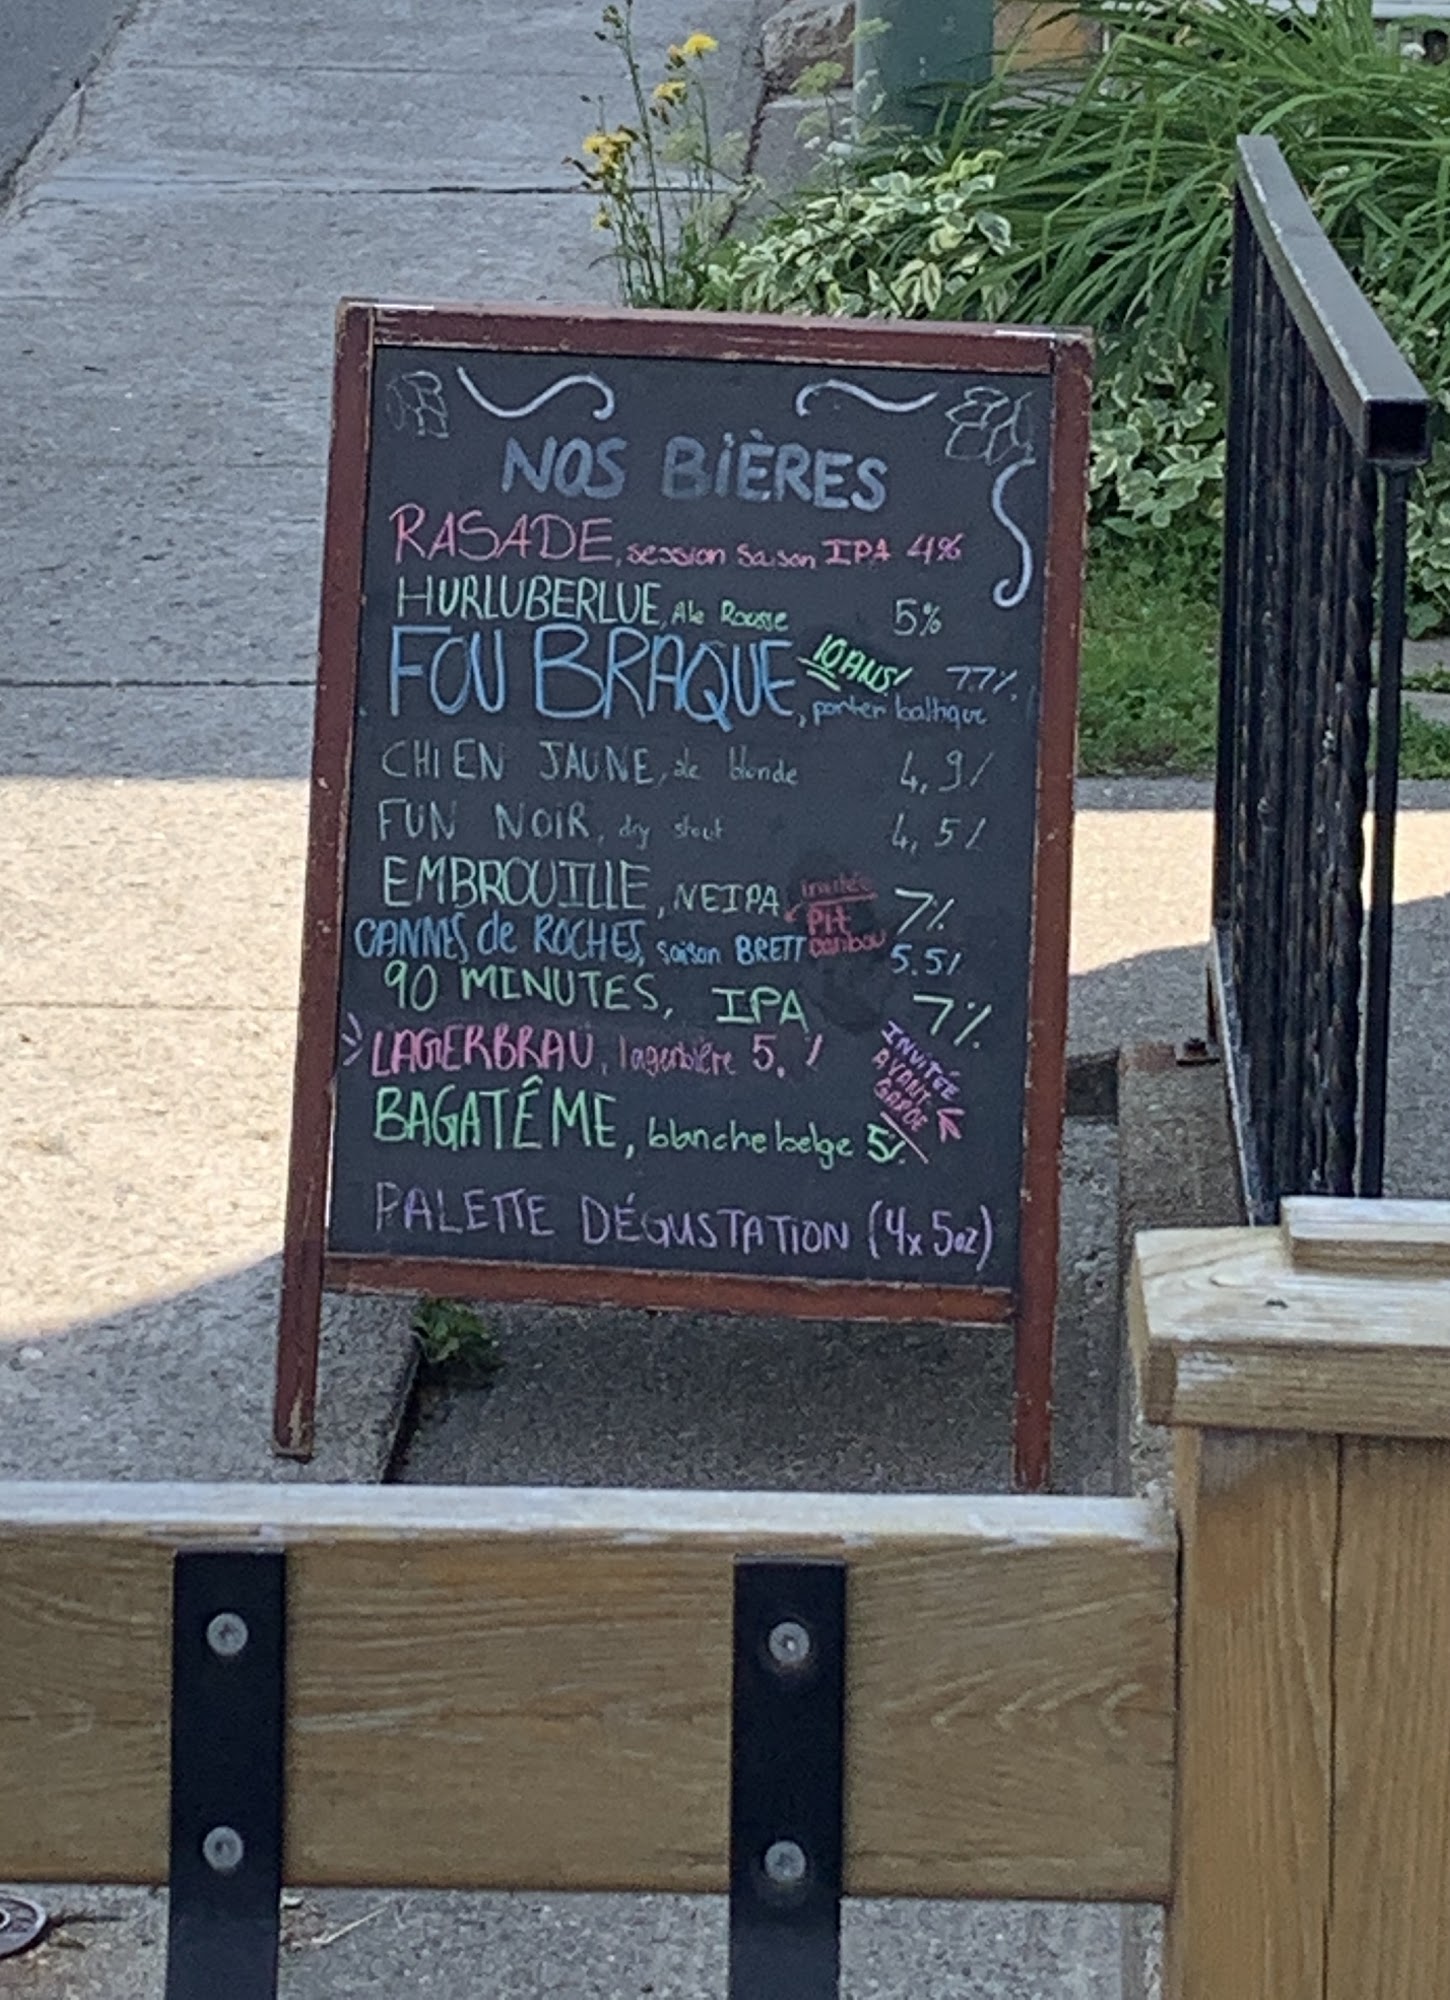 NOS BIÈRES
RASADE, session saison IPA 4%
HURLUBERLUE, Ale Rousse 5%
FOU BRAQUE, 10 ANS! porter baltique 7.7%
CHIEN JAUNE, ale blonde 4,9%
FUN NOIR, dry stout 4,5%
EMBROUILLE, NEIPA 7%
invitée Pit caribou
CANNES de ROCHES, saison BRETT 5.5%
90 MINUTES, IPA 7%
LAGERBRAU, lagerbière 5. %
INVITÉE AVANT-GARDE
BAGATÊME, blanche belge 5%
PALETTE DÉGUSTATION (4x5oz)